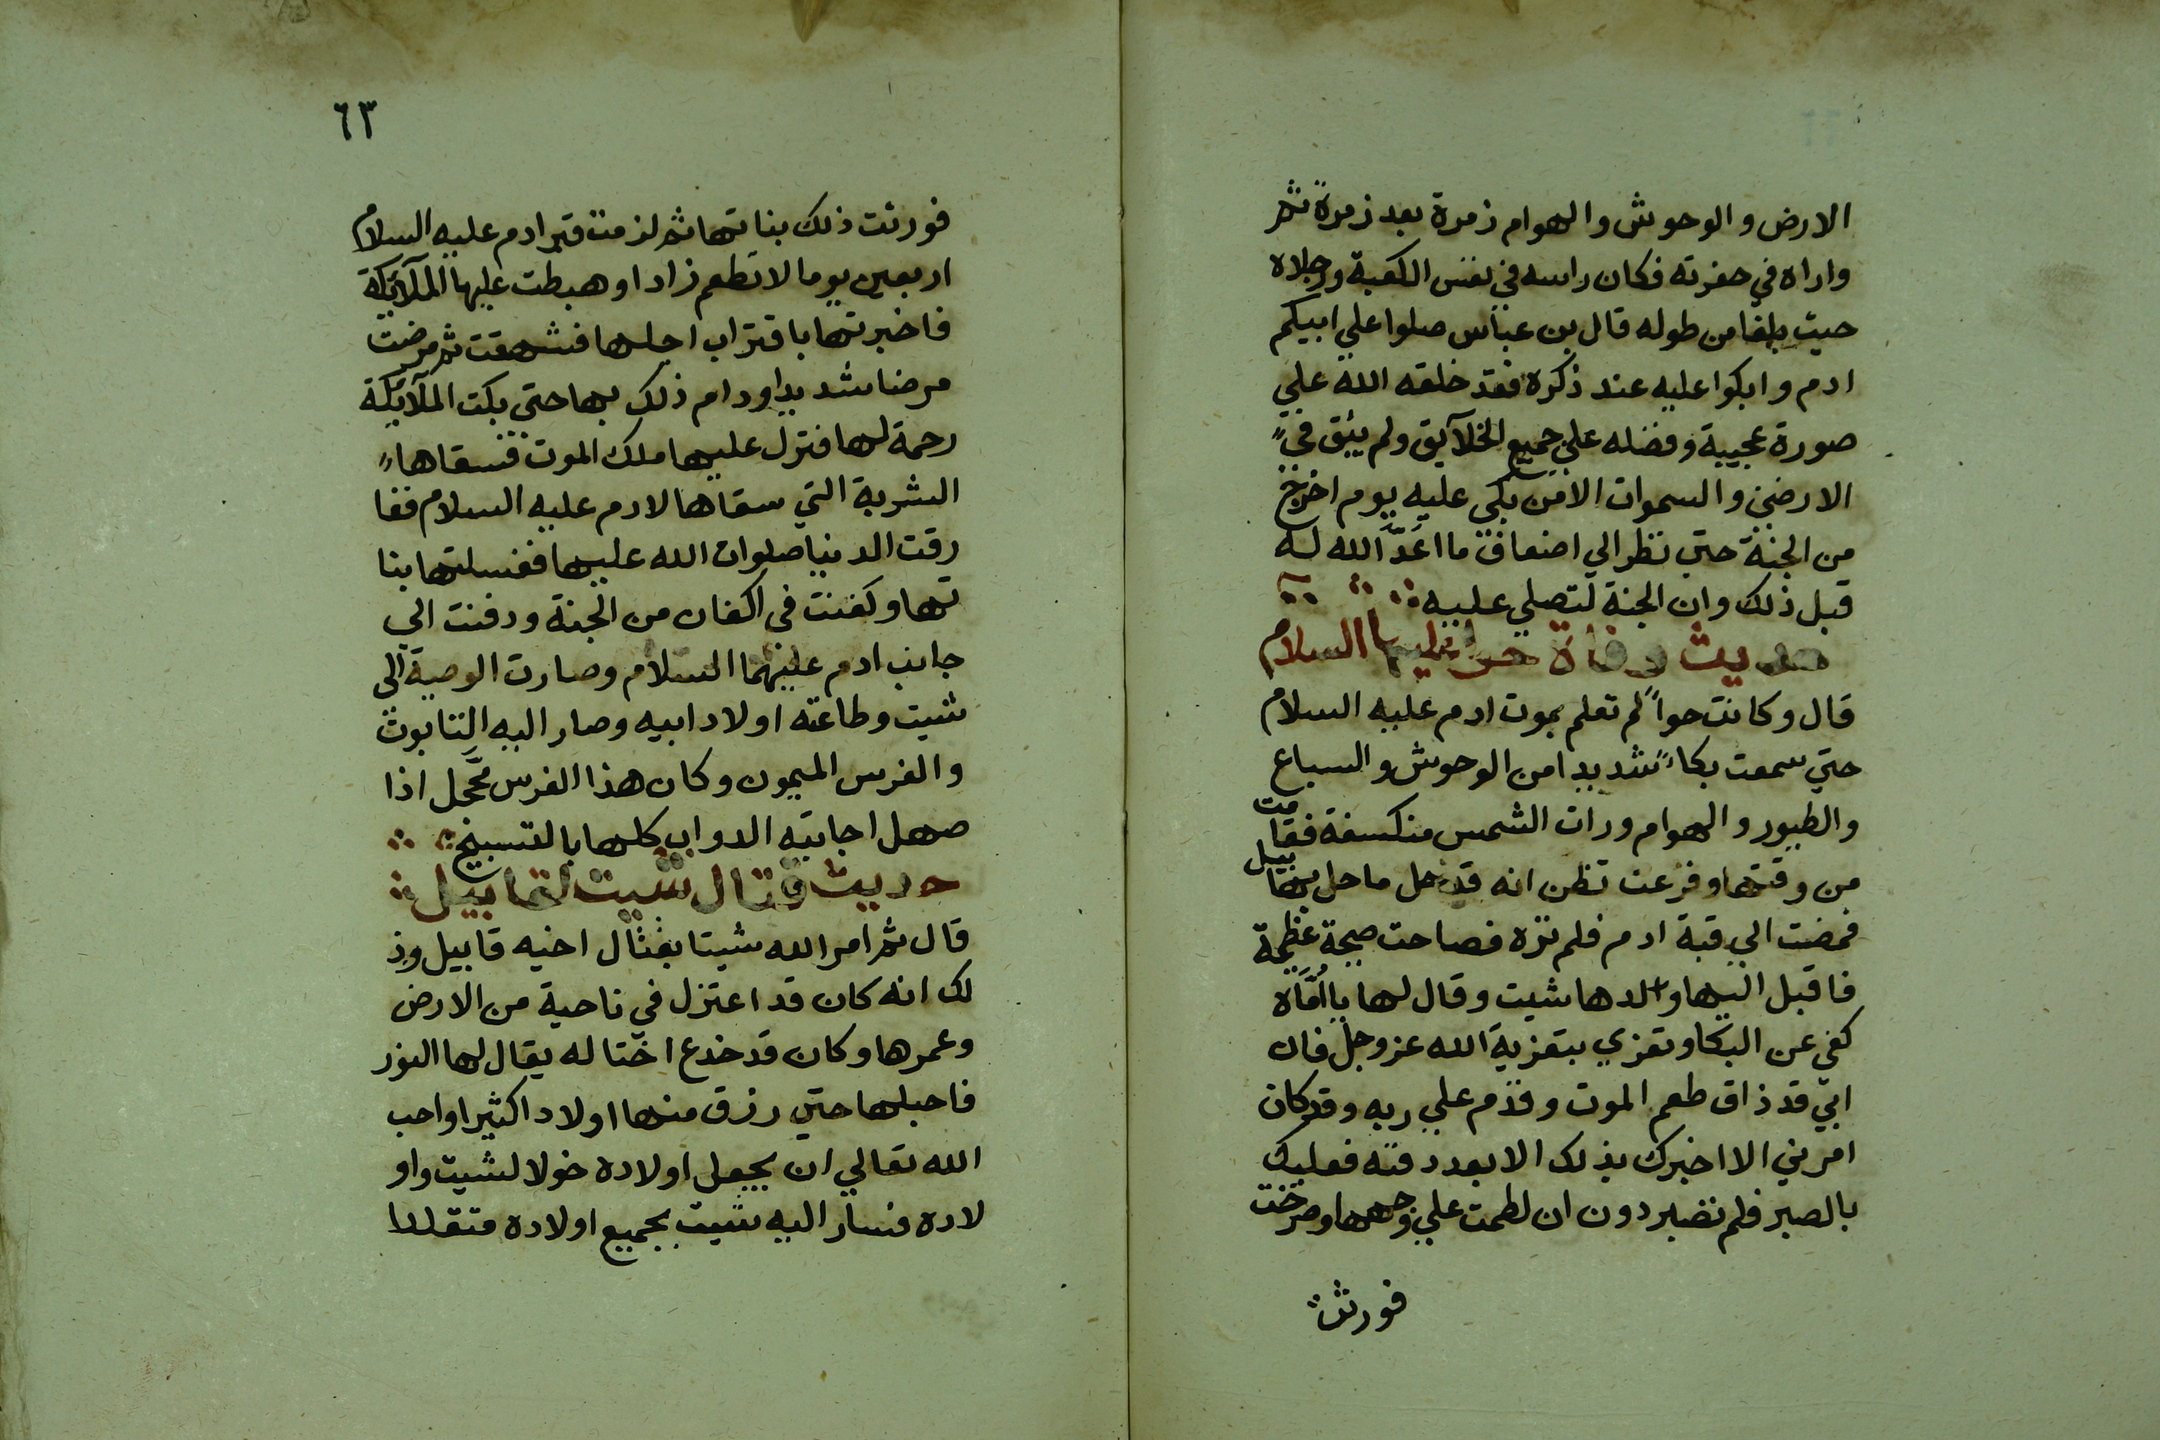 الارض والوحوش والهوام زمرة بعد زمرة ثم
واراه في حفرته فكان راسه في نفس الكعبة ورجلاه
حيث بلغا من طوله قال بن عباس صلوا علي ابيكم
ادم وابكوا عليه عند ذكره فقد خلقه الله علي
صورة عجيبة وفضله علي جميع الخلآيق ولم يبق في
الارضين والسموات الا من بكي عليه يوم اخرج
من الجنة حتي نظر الي اضعاف ما اعدّ الله له
قبل ذلك وان الجنة لتصلي عليه
حديث وفاة حوا عليها السلام
قال وكانت حواء لم تعلم بموت ادم عليه السلام
حتي سمعت بكاء شديدا من الوحوش والسباع
والطيور والهوام ورات الشمس منكسفة فقامت
من وقتها وفزعت تظن انه قد حل ما حل بهابيل
فمضت الي قبة ادم فلم تره فصاحت صيحة عظيمة
فاقبل اليها ولدها شيت وقال لها يا امّاه
كفي عن البكا وتعزي بتعزية الله عز وجل فان
ابي قد ذاق طعم الموت وقدم علي ربه وقد كان
امرني الا اخبرك بذلك الا بعد دفنه فعليك
بالصبر فلم تصبر دون ان لطمت علي وجهها وصرخت
فورثت
٦٣
فورثت ذلك بناتها ثم لزمت قبر ادم عليه السلام
اربعين يوما لا تطعم زادا وهبطت عليها الملآئكة
فاخبرتها باقتراب اجلها فشهقت ثم مرضت
مرضا شديدا ودام ذلك بها حتي بكت الملآئكة
رحمة لها فنزل عليها ملك الموت فسقاها
الشربة التي سقاها لادم عليه السلام ففا
رقت الدنيا صلوات الله عليها فغسلتها بنا
تها وكفنت في اكفان من الجنة ودفنت الي
جانب ادم عليهما السلام وصارت الوصية الي
شيت وطاعته اولاد ابيه وصار اليه التابوت
والفرس الميمون وكان هذا الفرس محجّل اذا
صهل اجابته الدواب كلها بالتسبيح
حديث قتال شيت لقابيل
قال ثم امر الله شيتا بقتال اخيه قابيل وذ
لك انه كان قد اعتزل في ناحية من الارض
وعمرها وكان قد خدع اختا له يقال لها النور
فاحبلها حتي رزق منها اولادا كثيرا واحب
الله تعالي ان يجعل اولاده خولا لشيت واو
لاده فسار اليه شيت بجميع اولاده متقلدا